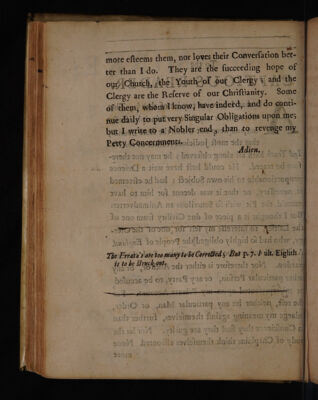 more esteems them, nor loves their Conversation bet-
ter than I do. They are the succeeding hope of
our Church, the Youth of our Clergy; and the
Clergy are the Reserve of our Christianity. Some
of them, whom I know, have indeed, and do conti-
nue daily to put very Singular Obligations upon me;
but I write to a Nobler end, than to revenge my
Petty Concernments.
Adieu.
The Errata's are too many to be Corrected; But p. 7. l ult. Eighth
is to be struck out.